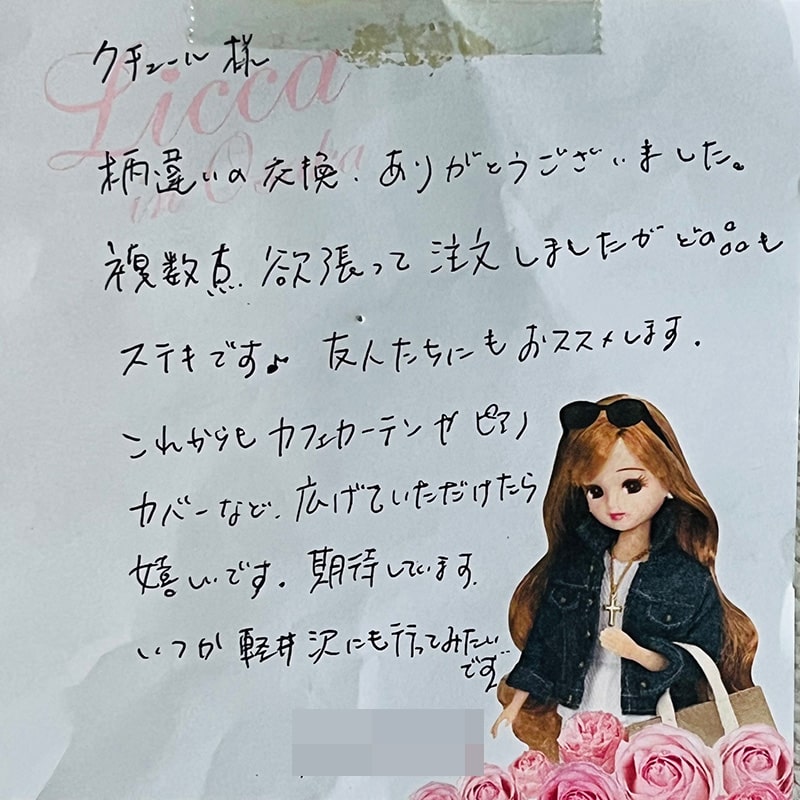 クチュール 様
Licca
in Osaka
柄違いの交換、ありがとうございました。
複数点、欲張って注文しましたがどの品も
ステキです♪ 友人たちにもおススメします。
これからもカフェカーテンやピアノ
カバーなど、広げていただけたら
嬉しいです。期待しています。
いつか軽井沢にも行ってみたい
です